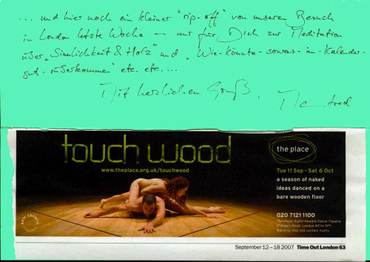 ... und hier noch ein kleiner "rip-off" von unserem Besuch
in London letzte Woche — nur für Dich zur Meditation
über "Sinnlichkeit & Holz" und "Wie-könnte-sowas-in-Kalender-
gut-rüberkommen" etc. etc. ...
Mit herzlichem Gruß,
touch wood
www.theplace.org.uk/touchwood
the place
Tue 11 Sep - Sat 6 Oct
a season of naked
ideas danced on a
bare wooden floor
020 7121 1100
September 12 – 18 2007 Time Out London 63